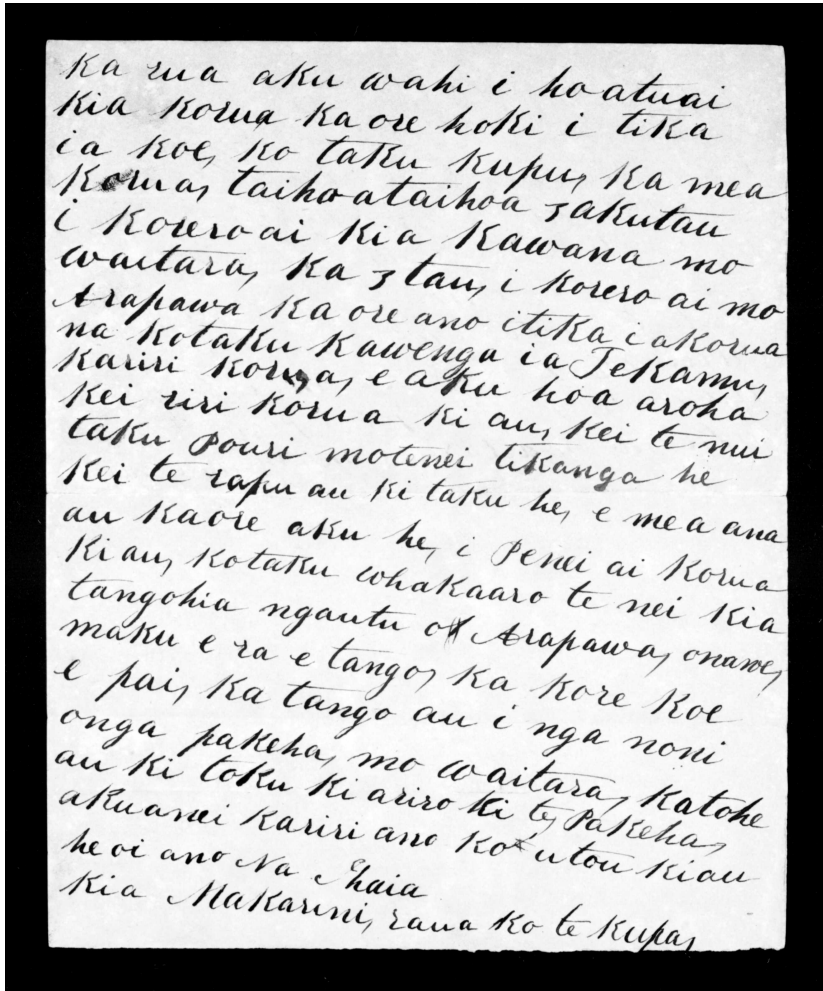 Ka rua aku wahi i hoatuai
kia korua kaore hoki i tika
ia koe, ko taku kupu, ka mea
Korua, taihoataihoa 3 akutau
i korero ai kia Kawana mo
waitara, ka 3 tau, i korero ai mo
Arapawa ka ore ano itika i akorua
na kotaku kawenga ia Te Kamu,
kariri korua, e aku hoa aroha
kei riri korua ki au, kei te nui
taku Pouri motenei tikanga he
kei te rapu au ki taku he, e mea ana
au kaore aku he, i Penei ai korua
kiau, kotaku whakaaro te nei kia
tangohia ngautu o Arapawa, onawe,
maku e ra e tango, ka kore koe
e pai, ka tango au i nga noni
onga pakeha, mo waitara, katohe
au ki toku ki ariro ki te, Pakeha,
akuanei kariri ano koutou kiau
heoi ano Na Ihaia
kia Makarini, raua ko te kupa,